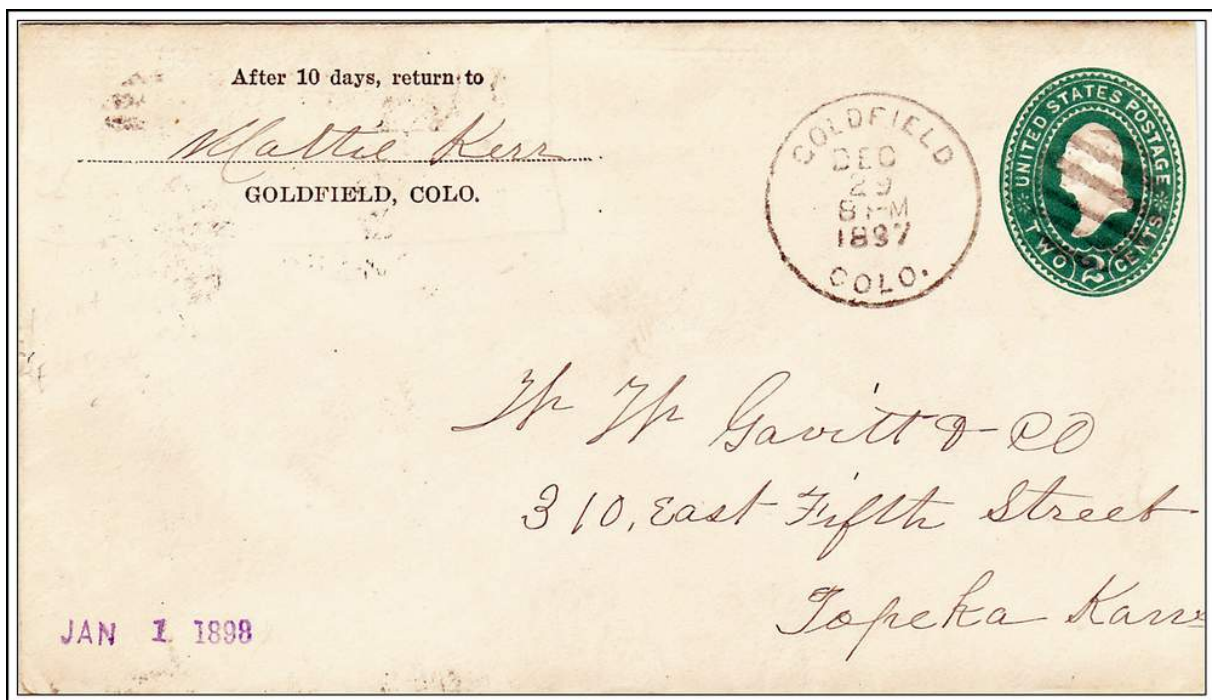 After 10 days, return to
Mattie Kerr
GOLDFIELD, COLO.
GOLDFIELD
DEC
29
8 PM
1897
COLO.
UNITED STATES POSTAGE
TWO 2 CENTS
W W Gavitt & CO
310, East Fifth Street
Topeka Kans
JAN 1 1898